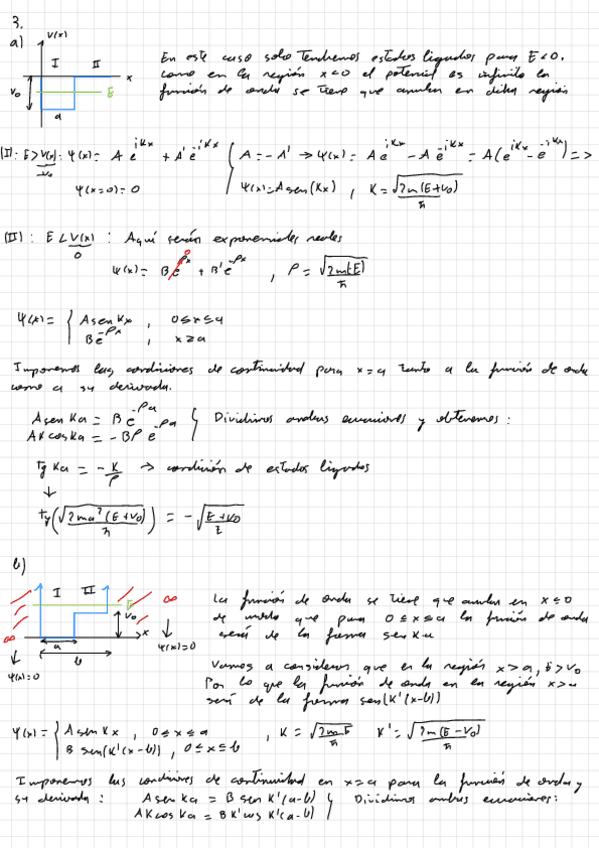 3.
a)
V(x)
I II
x
V₀
E
a
En este caso solo tendremos estados ligados para E<0.
como en la región x<0 el potencial es infinito la
función de onda se tiene que anular en dicha región
(I): E>V(x): Ψ(x) = A e^{iKx} + A' e^{-iKx} { A = -A' → Ψ(x) = A e^{iKx} - A e^{-iKx} = A(e^{iKx} - e^{-iKx}) =>
-V₀
Ψ(x=0) = 0
Ψ(x) = A sen(Kx) , K = √(2m(E+V₀)) / ħ
(II): E<V(x) : Aquí serán exponenciales reales
0
Ψ(x) = B e^{ρx} + B' e^{-ρx} , ρ = √(2m(-E)) / ħ
0
Ψ(x) = { A sen Kx , 0≤x≤a
B e^{-ρx} , x≥a
Imponemos las condiciones de continuidad para x=a tanto a la función de onda
como a su derivada.
A sen Ka = B e^{-ρa}
AK cos Ka = -Bρ e^{-ρa} } Dividimos ambas ecuaciones y obtenemos:
tg Ka = -K/ρ → condición de estados ligados
↓
tg(√(2ma²(E+V₀)) / ħ) = -√((E+V₀)/E)
b)
I II
∞ ∞
E
V₀
x
a
b
Ψ(x)=0 Ψ(x)=0
La función de onda se tiene que anular en x≤0
de modo que para 0≤x≤a la función de onda
será de la forma sen Kx
Vamos a considerar que en la región x>a, E>V₀
Por lo que la función de onda en la región x>a
será de la forma sen(K'(x-b))
Ψ(x) = { A sen Kx , 0≤x≤a , K = √(2mE) / ħ K' = √(2m(E-V₀)) / ħ
B sen(K'(x-b)) , 0≤x≤b
Imponemos las condiciones de continuidad en x=a para la función de onda y
su derivada: A sen Ka = B sen K'(a-b) } Dividimos ambas ecuaciones:
AK cos Ka = BK' cos K'(a-b)